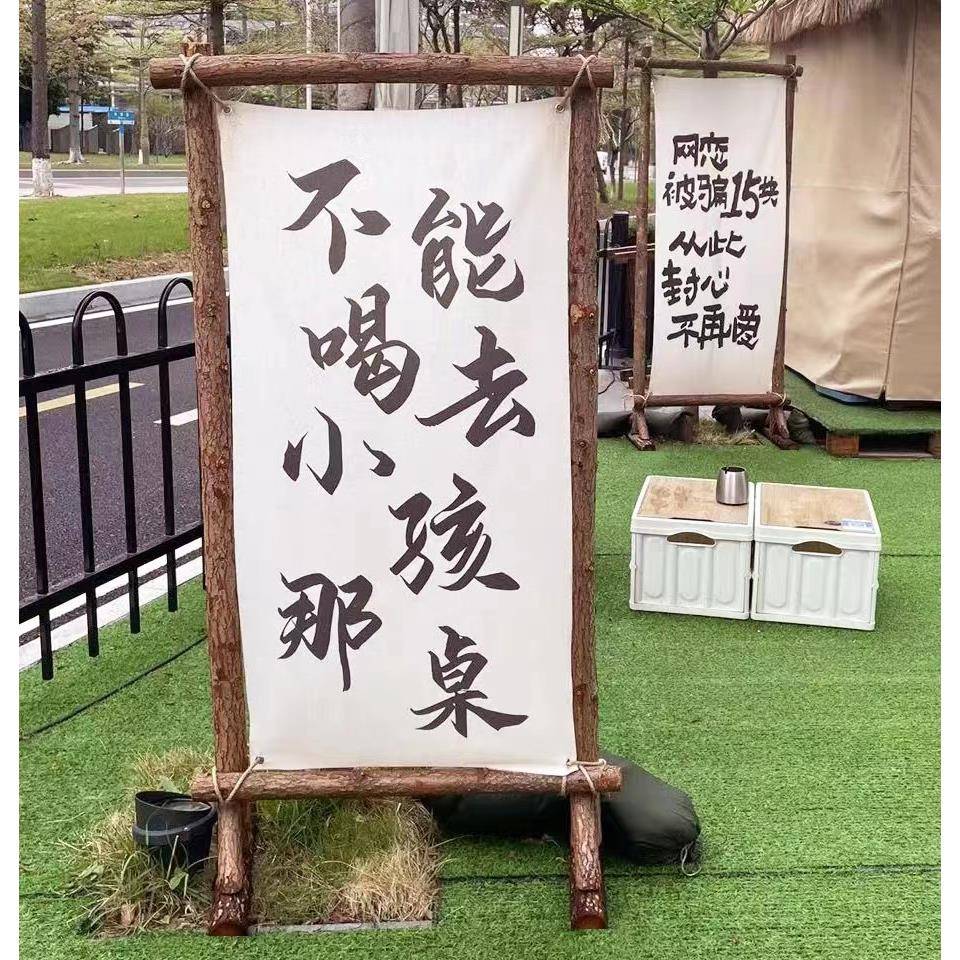 不能
喝去
小孩
那桌
网恋
被骗15块
从此
封心
不再爱